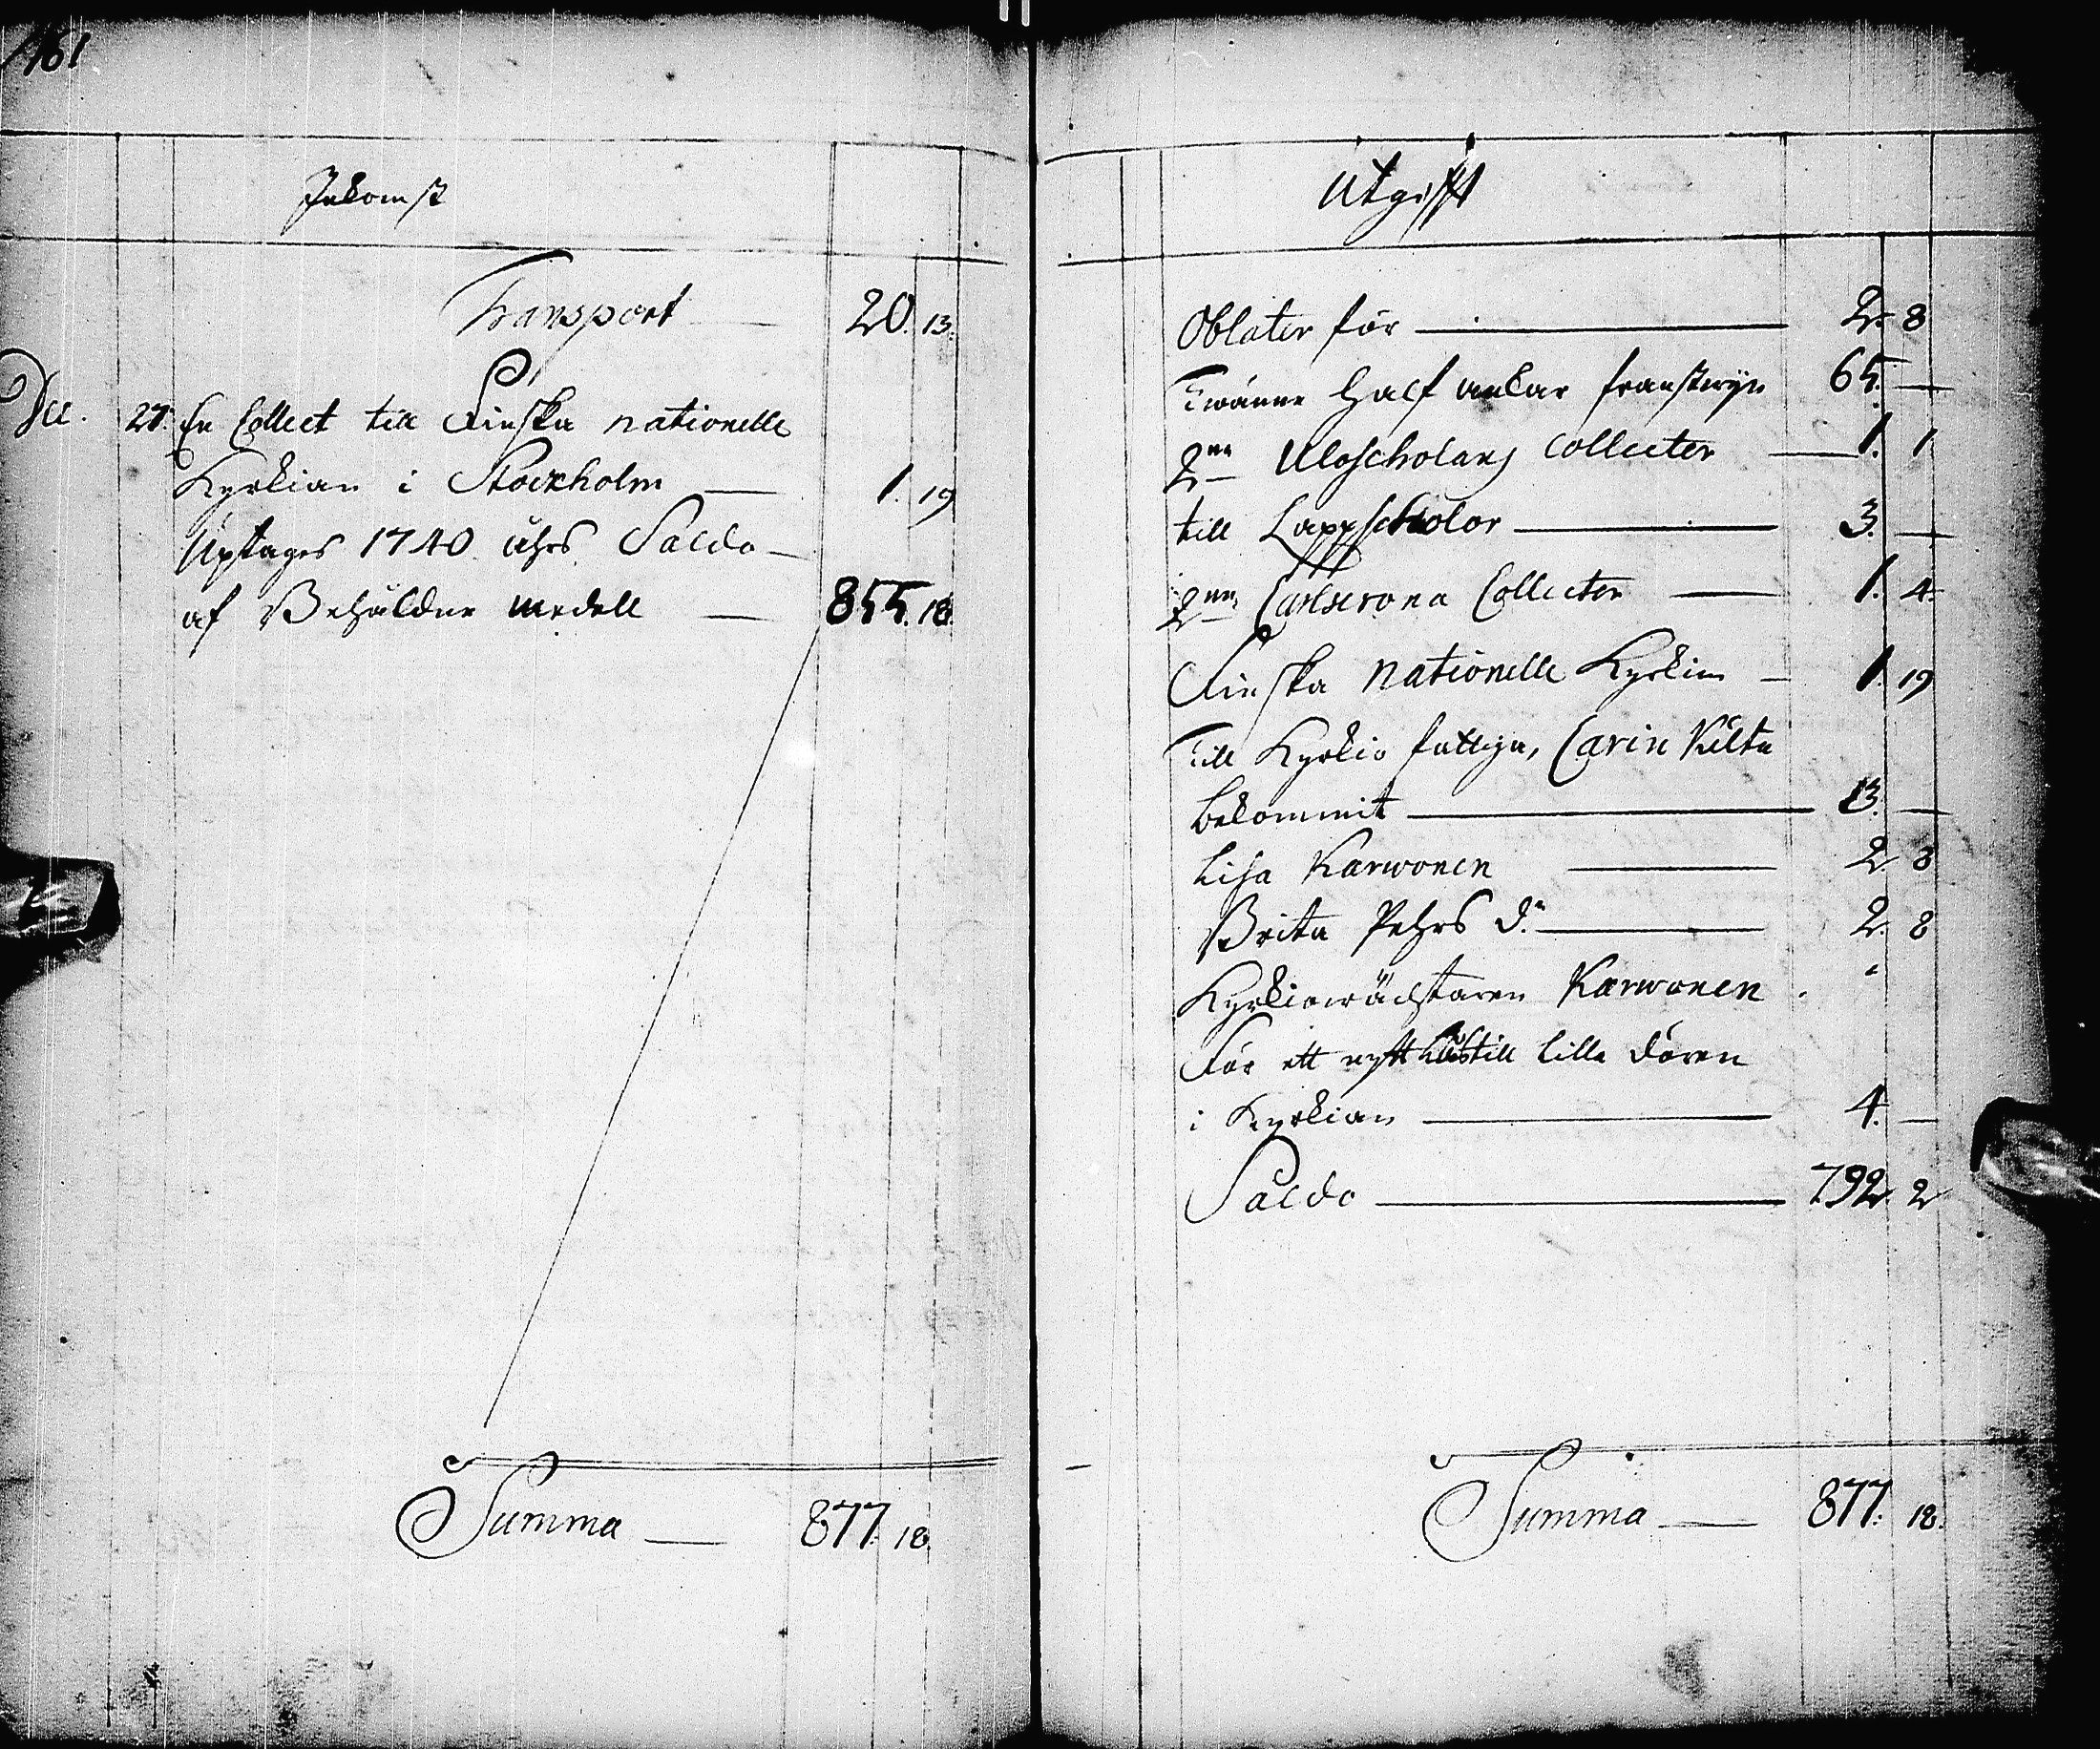 161
Inkomst
Transport 20. 13.
Dec. 27. En Collect till Finska nationelle
Kyrkian i Stockholm 1. 19
Uptages 1740 åhrs Saldo
af Behåldne medell 855. 18.
Summa 877. 18.
Utgifft
Oblater för 2. 8
Twänne Half ankar franstwijn 65. —
2ne Uloscholans Collecter 1. 1
till Lappscholor 3. —
2ne Carlscrona Collecter 1. 4.
Finska nationelle Kyrkian 1. 19
Till Kyrkio fattiga, Carin Kilta
bekommit 3. —
Lisa Karwonen 2. 8
Brita Pehrs d:r 2. 8
Kyrkiowächtaren Karwonen
För ett nytt lås till lilla dören
i Kyrkian 4. —
Saldo 792. 2
Summa 877. 18.